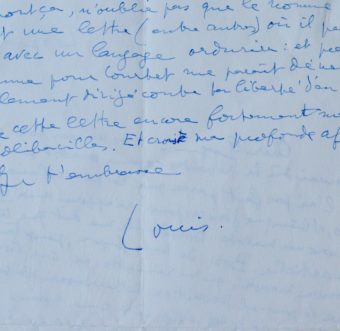 ça, n'oublie pas que le nommé
une lettre (entre autres) où il
avec un langage ordurier : et
pour Courbet me paraît
dirigé contre la liberté d'
cette lettre encore fortement
colibacilles. Et crois ma profonde
Je t'embrasse
Louis.